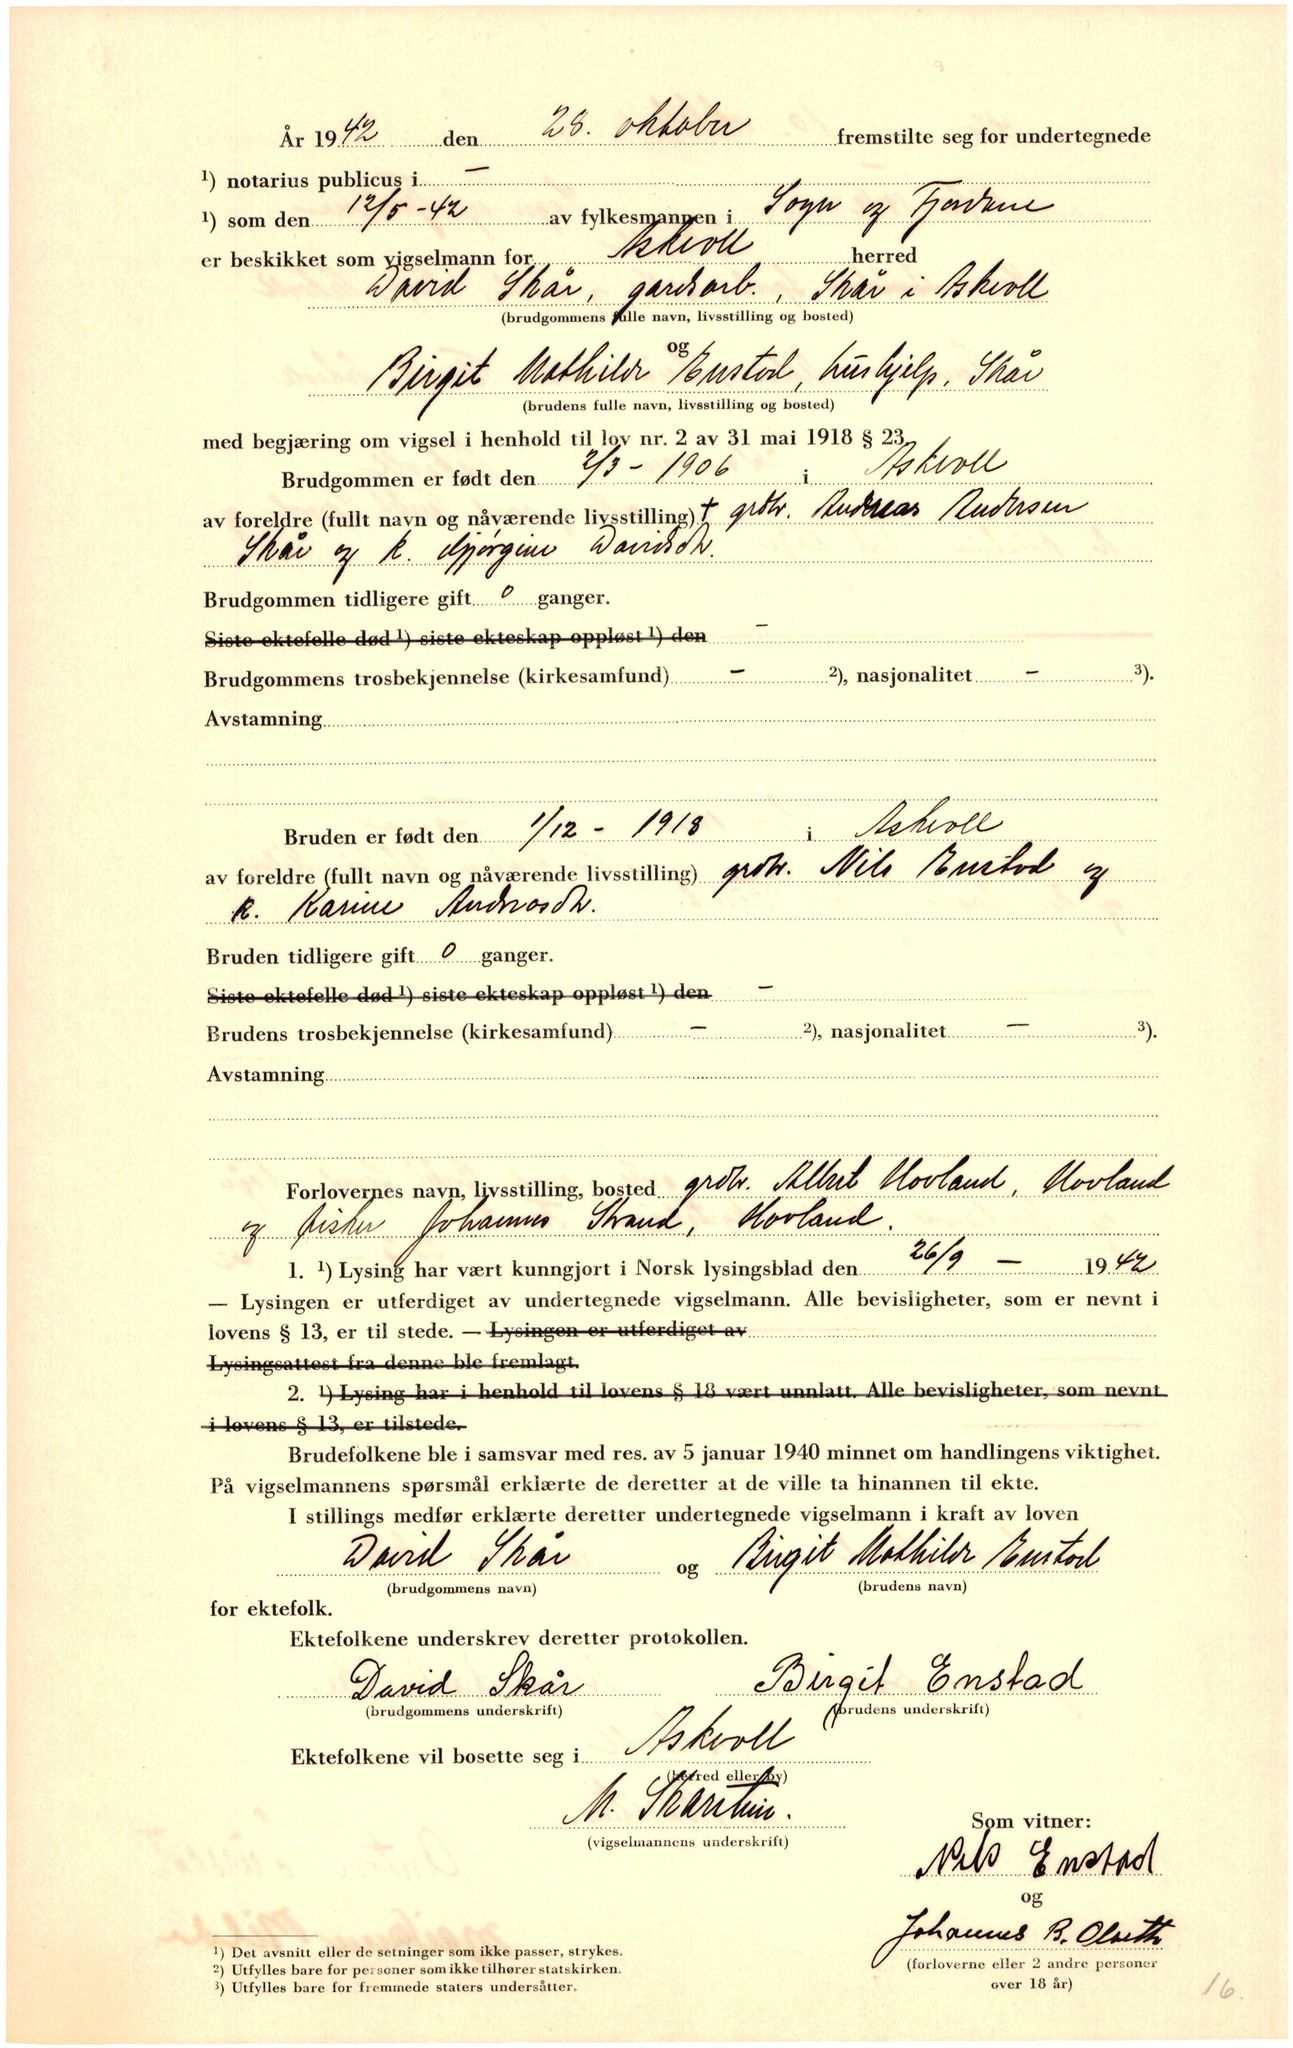 År 1942 den 28. oktober fremstilte seg for undertegnede
¹) notarius publicus i —
¹) som den 12/5 - 42 av fylkesmannen i Sogn og Fjordane
er beskikket som vigselmann for Askvoll herred
David Skår, gardsarb., Skår i Askvoll
(brudgommens fulle navn, livsstilling og bosted)
og
Birgit Mathilde Enstad, hushjelp, Skår
(brudens fulle navn, livsstilling og bosted)
med begjæring om vigsel i henhold til lov nr. 2 av 31 mai 1918 § 23.
Brudgommen er født den 2/3 - 1906 i Askvoll
av foreldre (fullt navn og nåværende livsstilling) † grdbr. Andreas Andersen
Skår og k. Gjørgine Davidsdtr.
Brudgommen tidligere gift 0 ganger.
Siste ektefelle død ¹) siste ekteskap oppløst ¹) den —
Brudgommens trosbekjennelse (kirkesamfund) — ²), nasjonalitet — ³).
Avstamning
Bruden er født den 1/12 - 1918 i Askvoll
av foreldre (fullt navn og nåværende livsstilling) grdbr. Nils Enstad og
k. Karine Andreasdtr.
Bruden tidligere gift 0 ganger.
Siste ektefelle død ¹) siste ekteskap oppløst ¹) den —
Brudens trosbekjennelse (kirkesamfund) — ²), nasjonalitet — ³).
Avstamning
Forlovernes navn, livsstilling, bosted grdbr. Albert Hovland, Hovland
og fisker Johannes Strand, Hovland.
1. ¹) Lysing har vært kunngjort i Norsk lysingsblad den 26/9 — 1942
— Lysingen er utferdiget av undertegnede vigselmann. Alle bevisligheter, som er nevnt i
lovens § 13, er til stede. — Lysingen er utferdiget av
Lysingsattest fra denne ble fremlagt.
2. ¹) Lysing har i henhold til lovens § 18 vært unnlatt. Alle bevisligheter, som nevnt
i lovens § 13, er tilstede.
Brudefolkene ble i samsvar med res. av 5 januar 1940 minnet om handlingens viktighet.
På vigselmannens spørsmål erklærte de deretter at de ville ta hinannen til ekte.
I stillings medfør erklærte deretter undertegnede vigselmann i kraft av loven
David Skår og Birgit Mathilde Enstad
(brudgommens navn) (brudens navn)
for ektefolk.
Ektefolkene underskrev deretter protokollen.
David Skår Birgit Enstad
(brudgommens underskrift) (brudens underskrift)
Ektefolkene vil bosette seg i Askvoll
(herred eller by)
M. Skarstein.
(vigselmannens underskrift)
Som vitner:
Nils Enstad
og
Johannes B.
(forloverne eller 2 andre personer
over 18 år)
¹) Det avsnitt eller de setninger som ikke passer, strykes.
²) Utfylles bare for personer som ikke tilhører statskirken.
³) Utfylles bare for fremmede staters undersåtter.
16.